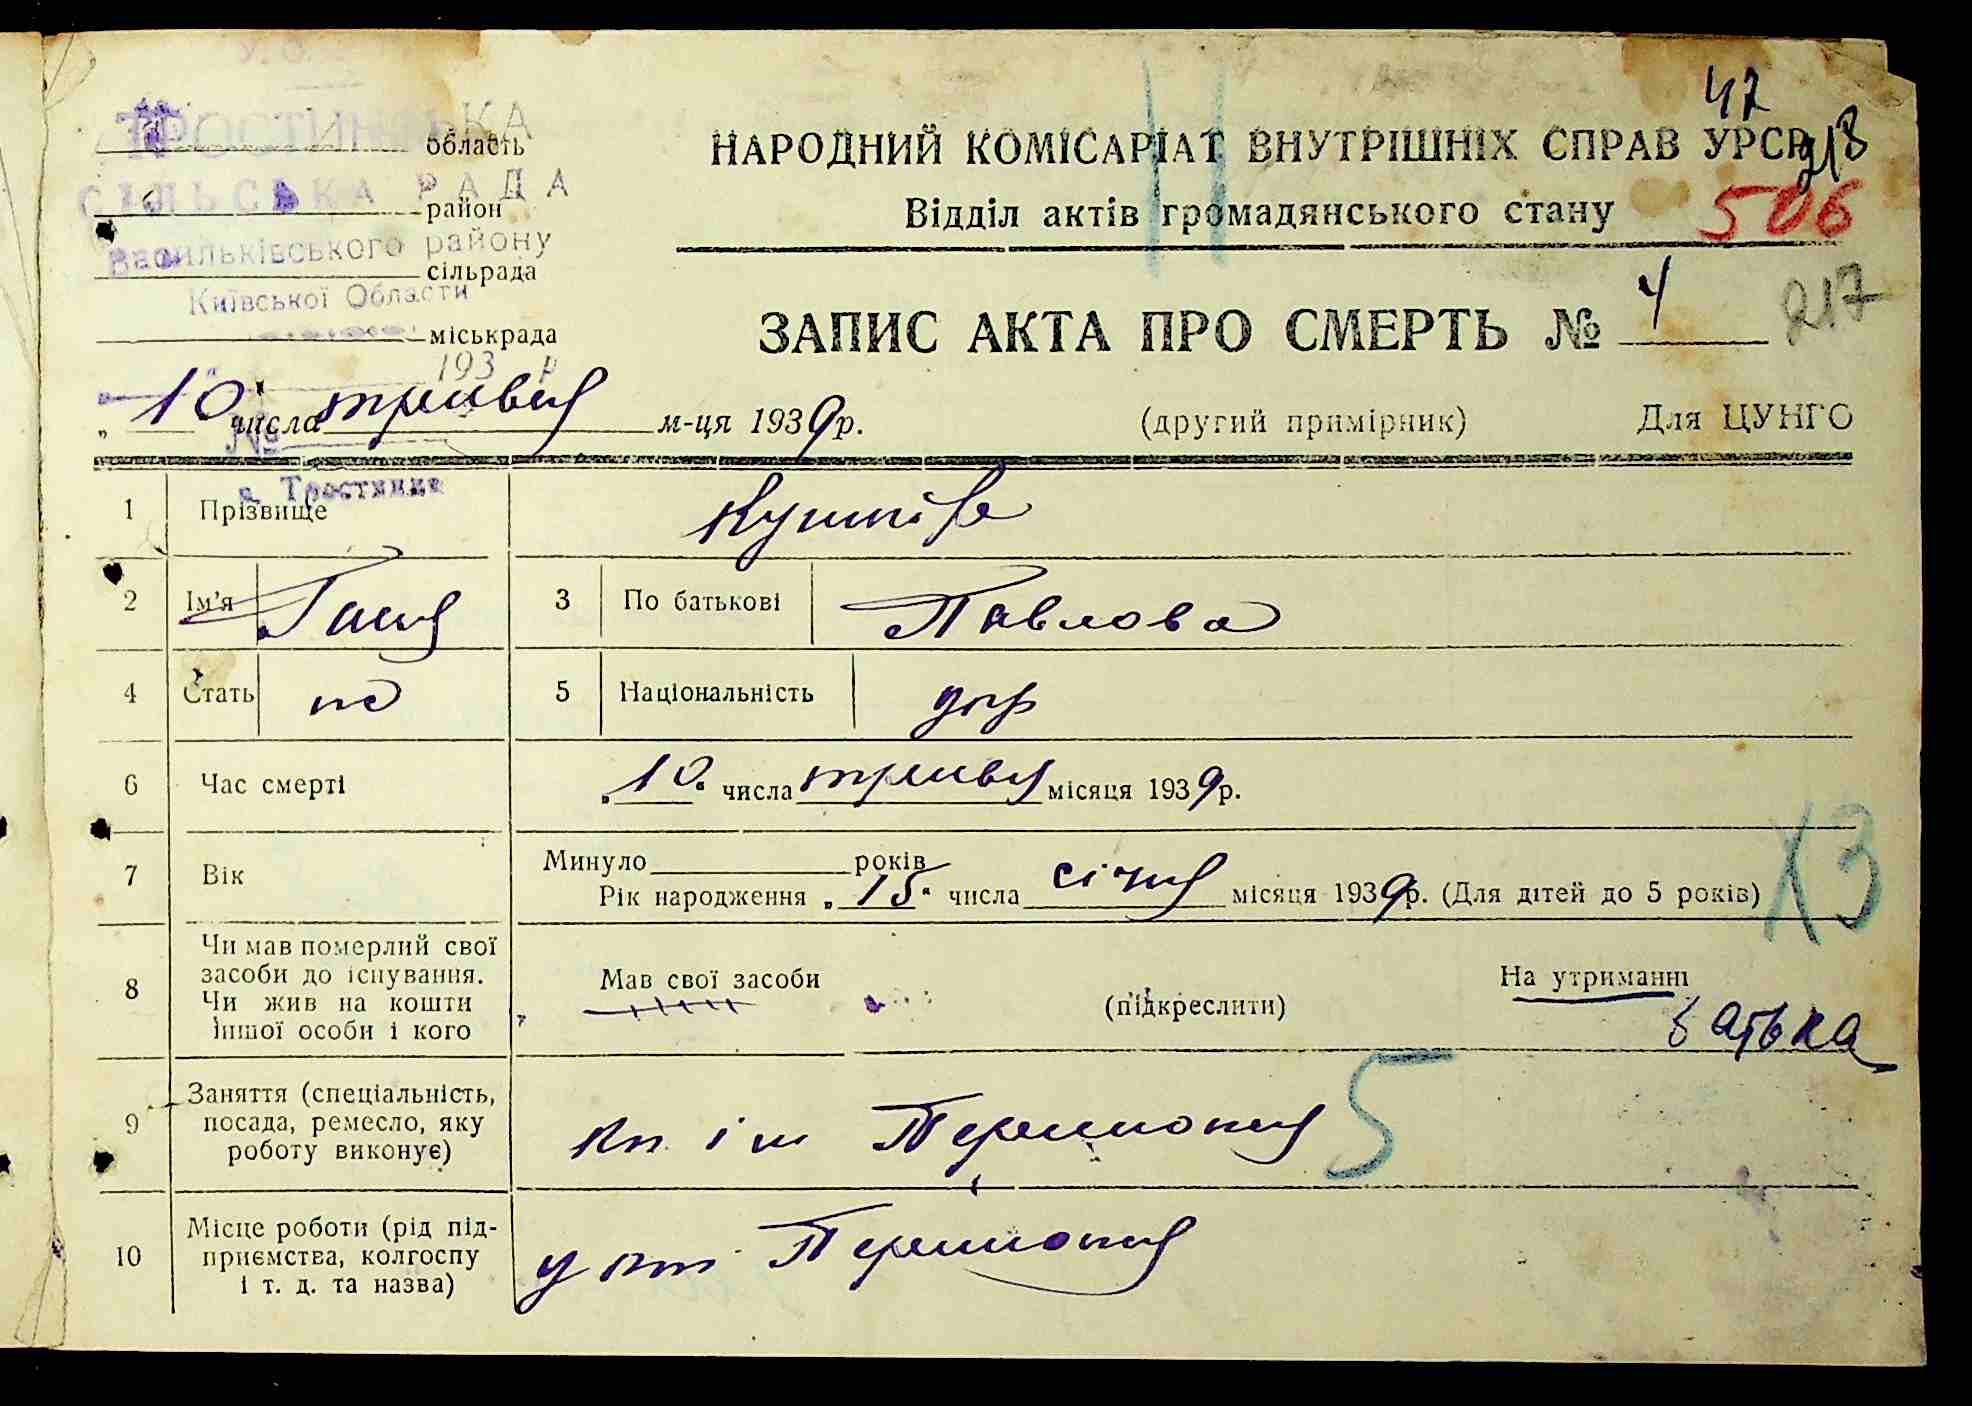 У. С.
ТРОСТИНСЬКА область
СІЛЬСЬКА РАДА район
Васильківського району
сільрада
Київської Области
міськрада
193 р
№
с. Тростинка
47
218
НАРОДНИЙ КОМІСАРІАТ ВНУТРІШНІХ СПРАВ УРСР
506
Відділ актів громадянського стану
ЗАПИС АКТА ПРО СМЕРТЬ № 4
217
„10 числа травня м-ця 1939р.
(другий примірник) Для ЦУНГО
1 Прізвище
2 Ім'я Ганя 3 По батькові Павлова
4 Стать 5 Національність укр
6 Час смерті „10" числа травня місяця 1939р.
7 Вік Минуло років
Рік народження „15" числа січня місяця 1939р. (Для дітей до 5 років)
13
8 Чи мав померлий свої засоби до існування. Чи жив на кошти іншої особи і кого
Мав свої засоби (підкреслити) На утриманні
батька
9 Заняття (спеціальність, посада, ремесло, яку роботу виконує)
5
10 Місце роботи (рід підприємства, колгоспу і т. д. та назва)